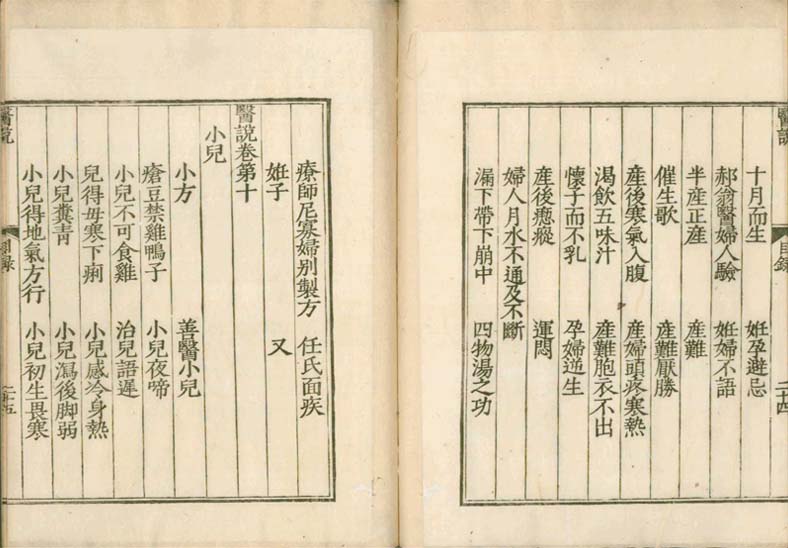 醫說 目錄 二十四
十月而生 妊孕避忌
郝翁醫婦人驗 妊婦不語
半産正産 産難
催生歌 産難厭勝
産後寒氣入腹 産婦頭疼寒熱
渴飲五味汁 産難胞衣不出
懷子而不乳 孕婦逆生
産後瘛瘲 運悶
婦人月水不通及不斷
漏下帶下崩中 四物湯之功
療師尼寡婦別製方 任氏面疾
妊子 又
醫說卷第十
小兒
小方 善醫小兒
瘡豆禁雞鴨子 小兒夜啼
小兒不可食雞 治兒語遲
兒得毋寒下痢 小兒感冷身熱
小兒糞青 小兒瀉後脚弱
小兒得地氣方行 小兒初生畏寒
醫說 目錄 二十五